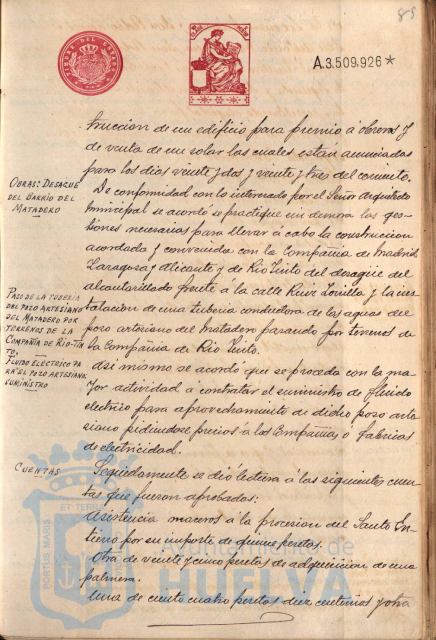 85
TIMBRE DEL ESTADO
A.3.509.926*
trucción de un edificio para premio á obreros y
de venta de un solar las cuales están anunciadas
para los dias veinte y dos y veinte y tres del corriente.
OBRAS: DESAGUE
DEL BARRIO DEL
MATADERO
De conformidad con lo interesado por el Señor Arquitecto
municipal se acordo se practiquen sin demora las ges-
tiones necesarias para llevar á cabo la construccion
acordada y convenida con la Compañia de Madrid
Zaragoza y Alicante y de Rio Tinto del desagüe del
alcantarillado frente á la calle Ruiz Zorrilla y la ins-
PASO DE LA TUBERIA
DEL POZO ARTESIANO
DEL MATADERO POR
TERRENOS DE LA
COMPAÑIA DE RIO-TIN
TO.
talacion de una tuberia conductora de las aguas del
pozo artesiano del Matadero pasando por terrenos de
la Compañia de Rio Tinto.
FLUIDO ELÉCTRICO PA
RA EL POZO ARTESIANO,
SUMINISTRO
Asi mismo se acordo que se proceda con la ma-
yor actividad á contratar el suministro de fluido
electrico para aprovechamiento de dicho pozo arte
siano pidiendose precios á las Compañias o fabricas
de electricidad.
CUENTAS
Seguidamente se dio lectura á las siguientes cuen-
tas que fueron aprobadas:
Asistencia maceros á la procesion del Santo En-
tierro por su importe de quince pesetas.
Otra de veinte y cinco pesetas de adquisicion de una
palmera.
Una de ciento cuatro pesetas diez centimos y otra
PORTUS MARIS ET TERRE
Ayuntamiento de
HUELVA